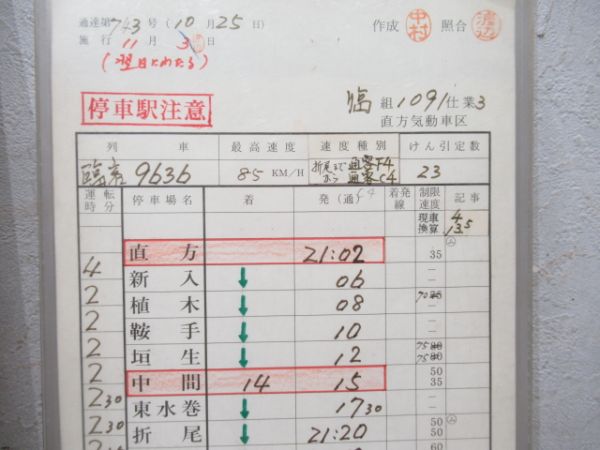 通達第743号(10月25日)
施行 11月3日
(翌日にわたる)
作成 中村 照合 渡辺
停車駅注意
臨組1091仕業3
直方気動車区
列車 最高速度 速度種別 けん引定数
臨客9636 85 KM/H 折尾まで通客F4 23
通客C4
運転時分 停車場名 着 発(通) 着発線 制限速度 記事
現車 4
換算 13.5
直方 21:02 35
4 新入 ↓ 06
2 植木 ↓ 08 70
2 鞍手 ↓ 10
2 垣生 ↓ 12 75
75
2 中間 14 15 50
35
2 30 東水巻 ↓ 17 30
2 30 折尾 ↓ 21:20 50
50
60